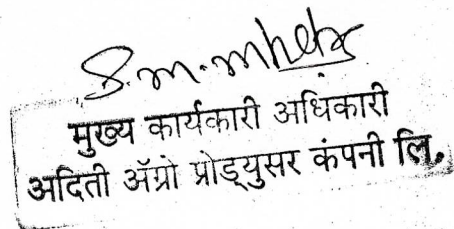 S. m. mhetr
मुख्य कार्यकारी अधिकारी
अदिती ॲग्रो प्रोड्युसर कंपनी लि.